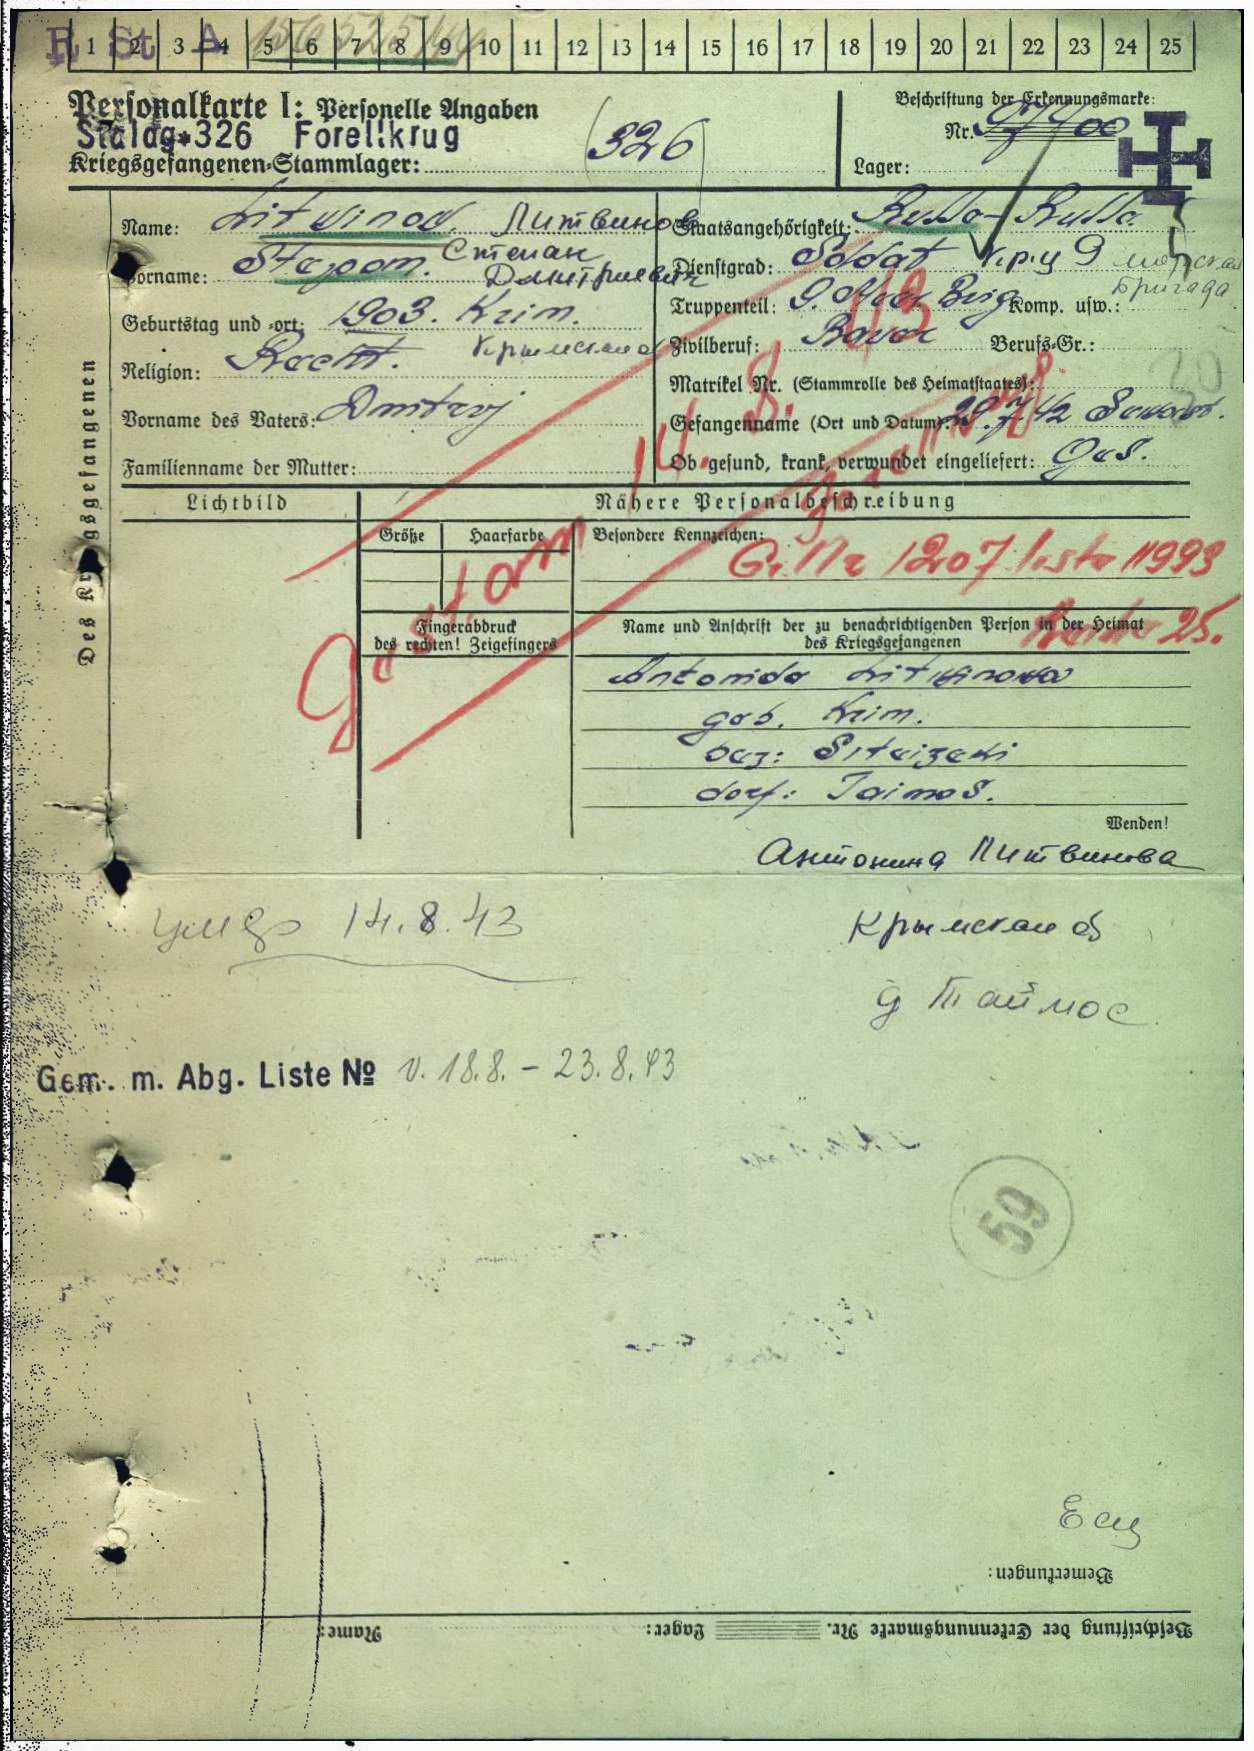 R. St. A
1 2 3 4 5 6 7 8 9 10 11 12 13 14 15 16 17 18 19 20 21 22 23 24 25
Personalkarte I: Personelle Angaben
Stalag 326 Forellkrug
(326)
Kriegsgefangenen-Stammlager:
Beschriftung der Erkennungsmarke:
Nr.
Lager:
Des Kriegsgefangenen
Name: Litwinow. Литвинов
Vorname: Stepan. Степан
Дмитриевич
Geburtstag und -ort: 1903. Krim.
Крымская об
Religion:
Vorname des Vaters: Dmitrij
Familienname der Mutter:
Staatsangehörigkeit: Russe - Russe
Dienstgrad: Soldat кр-ц 9 морская
бригада
Truppenteil: 9. Brig Komp. usw.:
Zivilberuf: Bauer Berufs-Gr.:
Matrikel Nr. (Stammrolle des Heimatstaates):
Gefangenname (Ort und Datum): 7 42
Ob gesund, krank, verwundet eingeliefert: Ges.
Gestorben 14.8.43
Lichtbild
Nähere Personalbeschreibung
Größe
Haarfarbe
Besondere Kennzeichen:
Gr. Nr 1207 11993
Reihe 25.
Fingerabdruck
des rechten! Zeigefingers
Name und Anschrift der zu benachrichtigenden Person in der Heimat
des Kriegsgefangenen
Antonida Litwinowa
geb. Krim.
dorf: Taimos.
Wenden!
Антонина Литвинова
умер 14.8.43
Крымская об
д Таймос
Gem. m. Abg. Liste № v. 18.8. - 23.8.43
59
Bemerkungen:
Beschriftung der Erkennungsmarke Nr. Lager: Name: